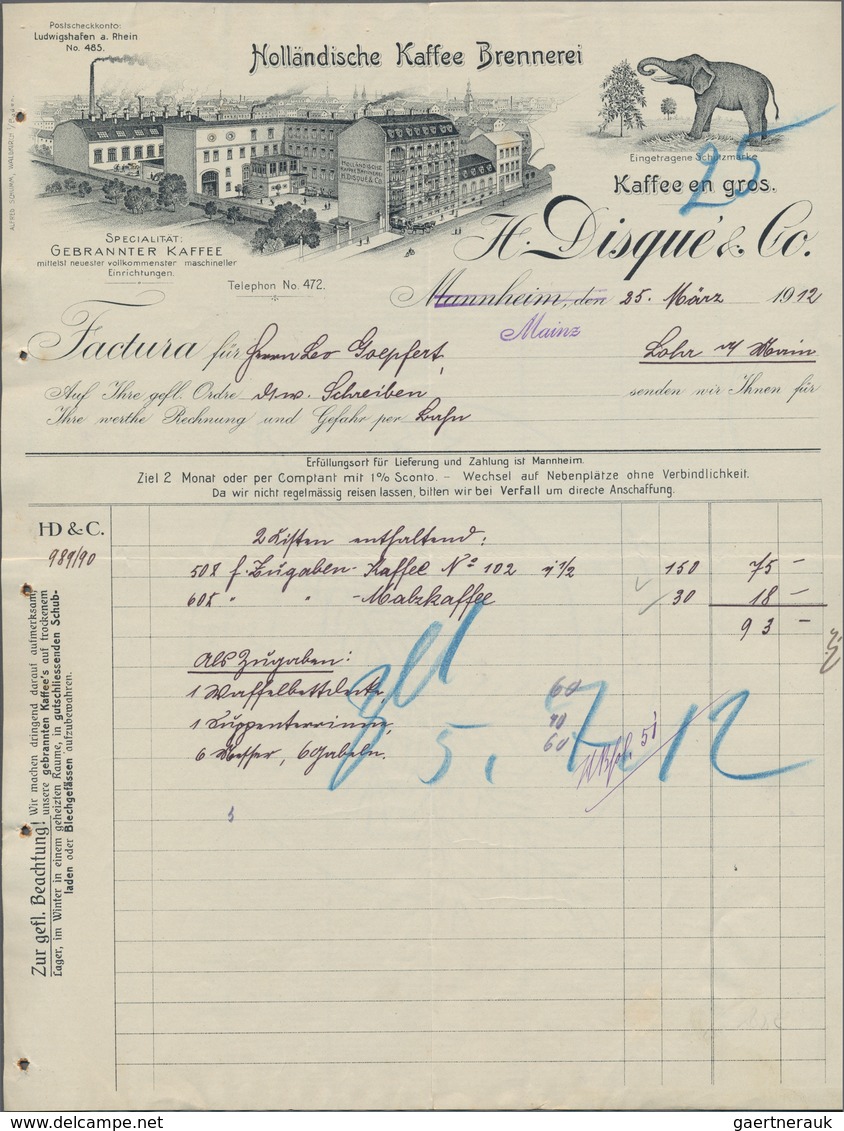 Postscheckkonto:
Ludwigshafen a. Rhein
No. 485.
Holländische Kaffee Brennerei
HOLLÄNDISCHE
KAFFEE BRENNEREI
H. DISQUÉ & Co.
Eingetragene Schutzmarke
25
Kaffee en gros.
H. Disqué & Co.
SPECIALITÄT:
GEBRANNTER KAFFEE
mittelst neuester vollkommenster maschineller
Einrichtungen.
Telephon No. 472.
Mannheim, den 25. März 1912
Mainz
Factura für Herrn Leo Goepfert, Lohr a/ Main
Auf Ihre gefl. Ordre Schreiben senden wir Ihnen für
Ihre werthe Rechnung und Gefahr per Bahn
Erfüllungsort für Lieferung und Zahlung ist Mannheim.
Ziel 2 Monat oder per Comptant mit 1% Sconto. — Wechsel auf Nebenplätze ohne Verbindlichkeit.
Da wir nicht regelmässig reisen lassen, bitten wir bei Verfall um directe Anschaffung.
HD & C.
989/90
2 Kisten enthaltend:
50 f. Zugaben-Kaffee No 102 1/2 150 75 —
60 " " -Malzkaffee 30 18 —
93 —
Als Zugaben:
1 Waffelbettdecke, 60
1 Suppenterrine,
6 Messer, 6 Gabeln. 60
5. 7. 12
Zur gefl. Beachtung! Wir machen dringend darauf aufmerksam,
unsere gebrannten Kaffee's auf trockenem
Lager, im Winter in einem geheizten Raume, in gutschliessenden Schub-
laden oder Blechgefässen aufzubewahren.
gaertnerauk